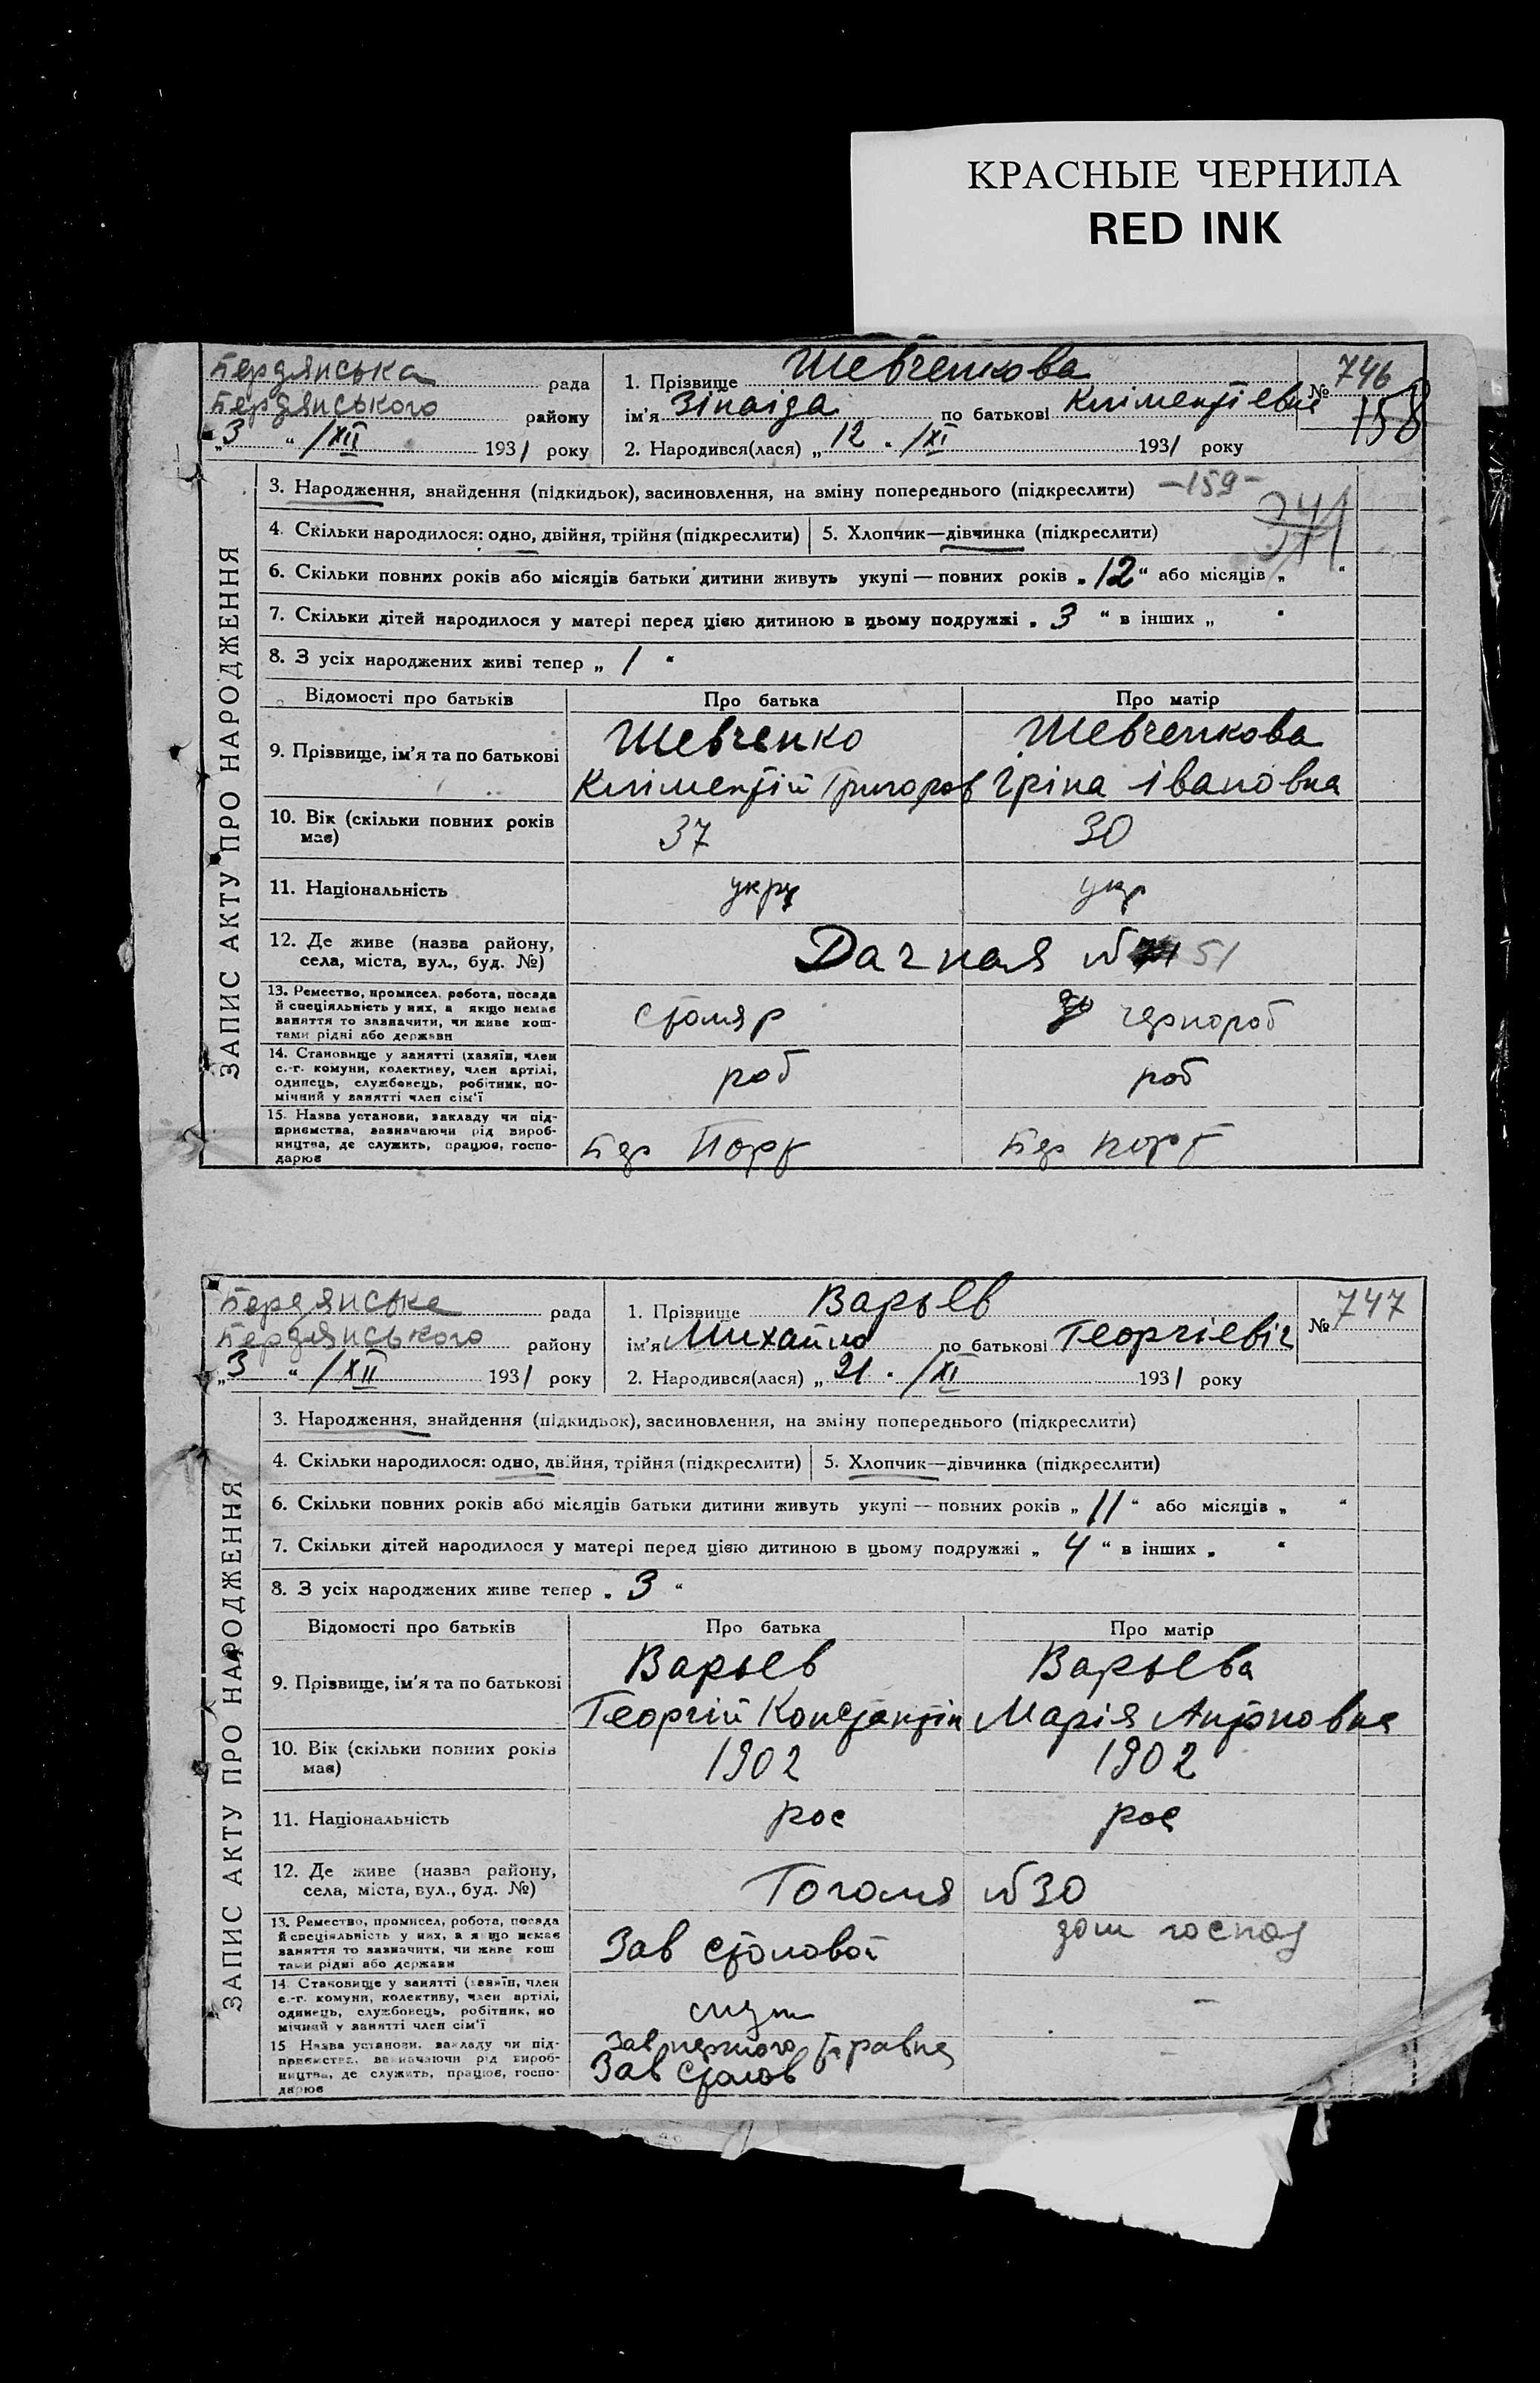 КРАСНЫЕ ЧЕРНИЛА
RED INK
Бердянська рада
Бердянського району
„3“ /XII 1931 року
1. Прізвище Шевченкова
ім'я Зінаіда по батькові Кліментіевна
2. Народився(лася) „12“ /XI 1931 року
№ 746
158
ЗАПИС АКТУ ПРО НАРОДЖЕННЯ
3. Народження, знайдення (підкидьок), засиновлення, на зміну попереднього (підкреслити) —159—
4. Скільки народилося: одно, двійня, трійня (підкреслити) 5. Хлопчик—дівчинка (підкреслити)
6. Скільки повних років або місяців батьки дитини живуть укупі — повних років „12“ або місяців „ “
7. Скільки дітей народилося у матері перед цією дитиною в цьому подружжі „3“ в інших „ “
8. З усіх народжених живі тепер „1“
Відомості про батьків Про батька Про матір
9. Прізвище, ім'я та по батькові
Шевченко
Кліментій Григоров
Шевченкова
Іріна Івановна
10. Вік (скільки повних років має) 37 30
11. Національність укр укр
12. Де живе (назва району, села, міста, вул., буд. №) Дачная № 51
13. Ремество, промисел, робота, посада
й спеціяльність у них, а якщо немає
заняття то зазначити, чи живе кош-
тами рідні або держави
столяр чернороб
14. Становище у занятті (хазяїн, член
с.-г. комуни, колективу, член артілі,
одинець, службовець, робітник, по-
мічний у занятті член сім'ї
роб роб
15. Назва установи, закладу чи під-
приємства, зазначаючи рід вироб-
ництва, де служить, працює, госпо-
дарює
Бер Порт Бер порт
Бердянська рада
Бердянського району
„3“ /XII 1931 року
1. Прізвище Варьев
ім'я Михайло по батькові Георгіевіч
2. Народився(лася) „21“ /XI 1931 року
№ 747
ЗАПИС АКТУ ПРО НАРОДЖЕННЯ
3. Народження, знайдення (підкидьок), засиновлення, на зміну попереднього (підкреслити)
4. Скільки народилося: одно, двійня, трійня (підкреслити) 5. Хлопчик—дівчинка (підкреслити)
6. Скільки повних років або місяців батьки дитини живуть укупі — повних років „11“ або місяців „ “
7. Скільки дітей народилося у матері перед цією дитиною в цьому подружжі „4“ в інших „ “
8. З усіх народжених живе тепер „3“
Відомості про батьків Про батька Про матір
9. Прізвище, ім'я та по батькові
Варьев
Георгій Константін
Варьева
Марія Антоновна
10. Вік (скільки повних років має) 1902 1902
11. Національність рос рос
12. Де живе (назва району, села, міста, вул., буд. №) Гоголя №30
13. Ремество, промисел, робота, посада
й спеціяльність у них, а якщо немає
заняття то зазначити, чи живе кош
тами рідні або держави
Зав столовой дом господ
14. Становище у занятті (хазяїн, член
с.-г. комуни, колективу, член артілі,
одинець, службовець, робітник, по
мічний у занятті член сім'ї
служ —
15 Назва установи, закладу чи під-
приємства, зазначаючи рід вироб-
ництва, де служить, працює, госпо-
дарює
Зав Травня
Зав столов —